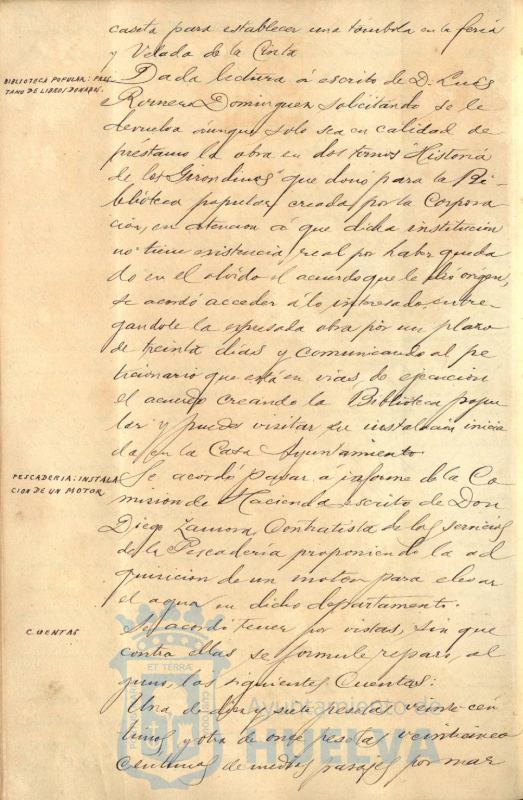 caseta para establecer una tómbola en la feria
y Velada de la Cinta
BIBLIOTECA POPULAR: PRES-
TANO DE LIBROS DONADOS.
Dada lectura á escrito de D. Luis
Romero Dominguez solicitando se le
devuelva aunque solo sea en calidad de
préstamo la obra en dos tomos "Historia
de los Girondinos" que donó para la Bi-
blioteca popular creada por la Corpora-
ción, en atencion á que dicha institución
no tiene existencia real por haber queda
do en el olvido el acuerdo que le dió origen,
se acordó acceder á lo interesado entre-
gandole la expresada obra por un plazo
de treinta días y comunicando al pe
ticionario que está en vías de ejecucion
el acuerdo creando la Biblioteca popu
lar y puede visitar su instalación inicia
da en la Casa Ayuntamiento
PESCADERIA: INSTALA
CION DE UN MOTOR
Se acordó pasar á informe de la Co
mision de Hacienda escrito de Don
Diego Zamora, Contratista de los servicios
de la Pescadería proponiendo la ad
quisicion de un motor para elevar
el agua en dicho departamento.
CUENTAS
Se acordó tener por vistas, sin que
contra ellas se formule reparo al
guno, las siguientes Cuentas:
Una de diez y siete pesetas veinte cen
timos y otra de once pesetas veinticinco
centimos de medios pasajes por mar
ET TERRÆ
Ayuntamiento de
HUELVA